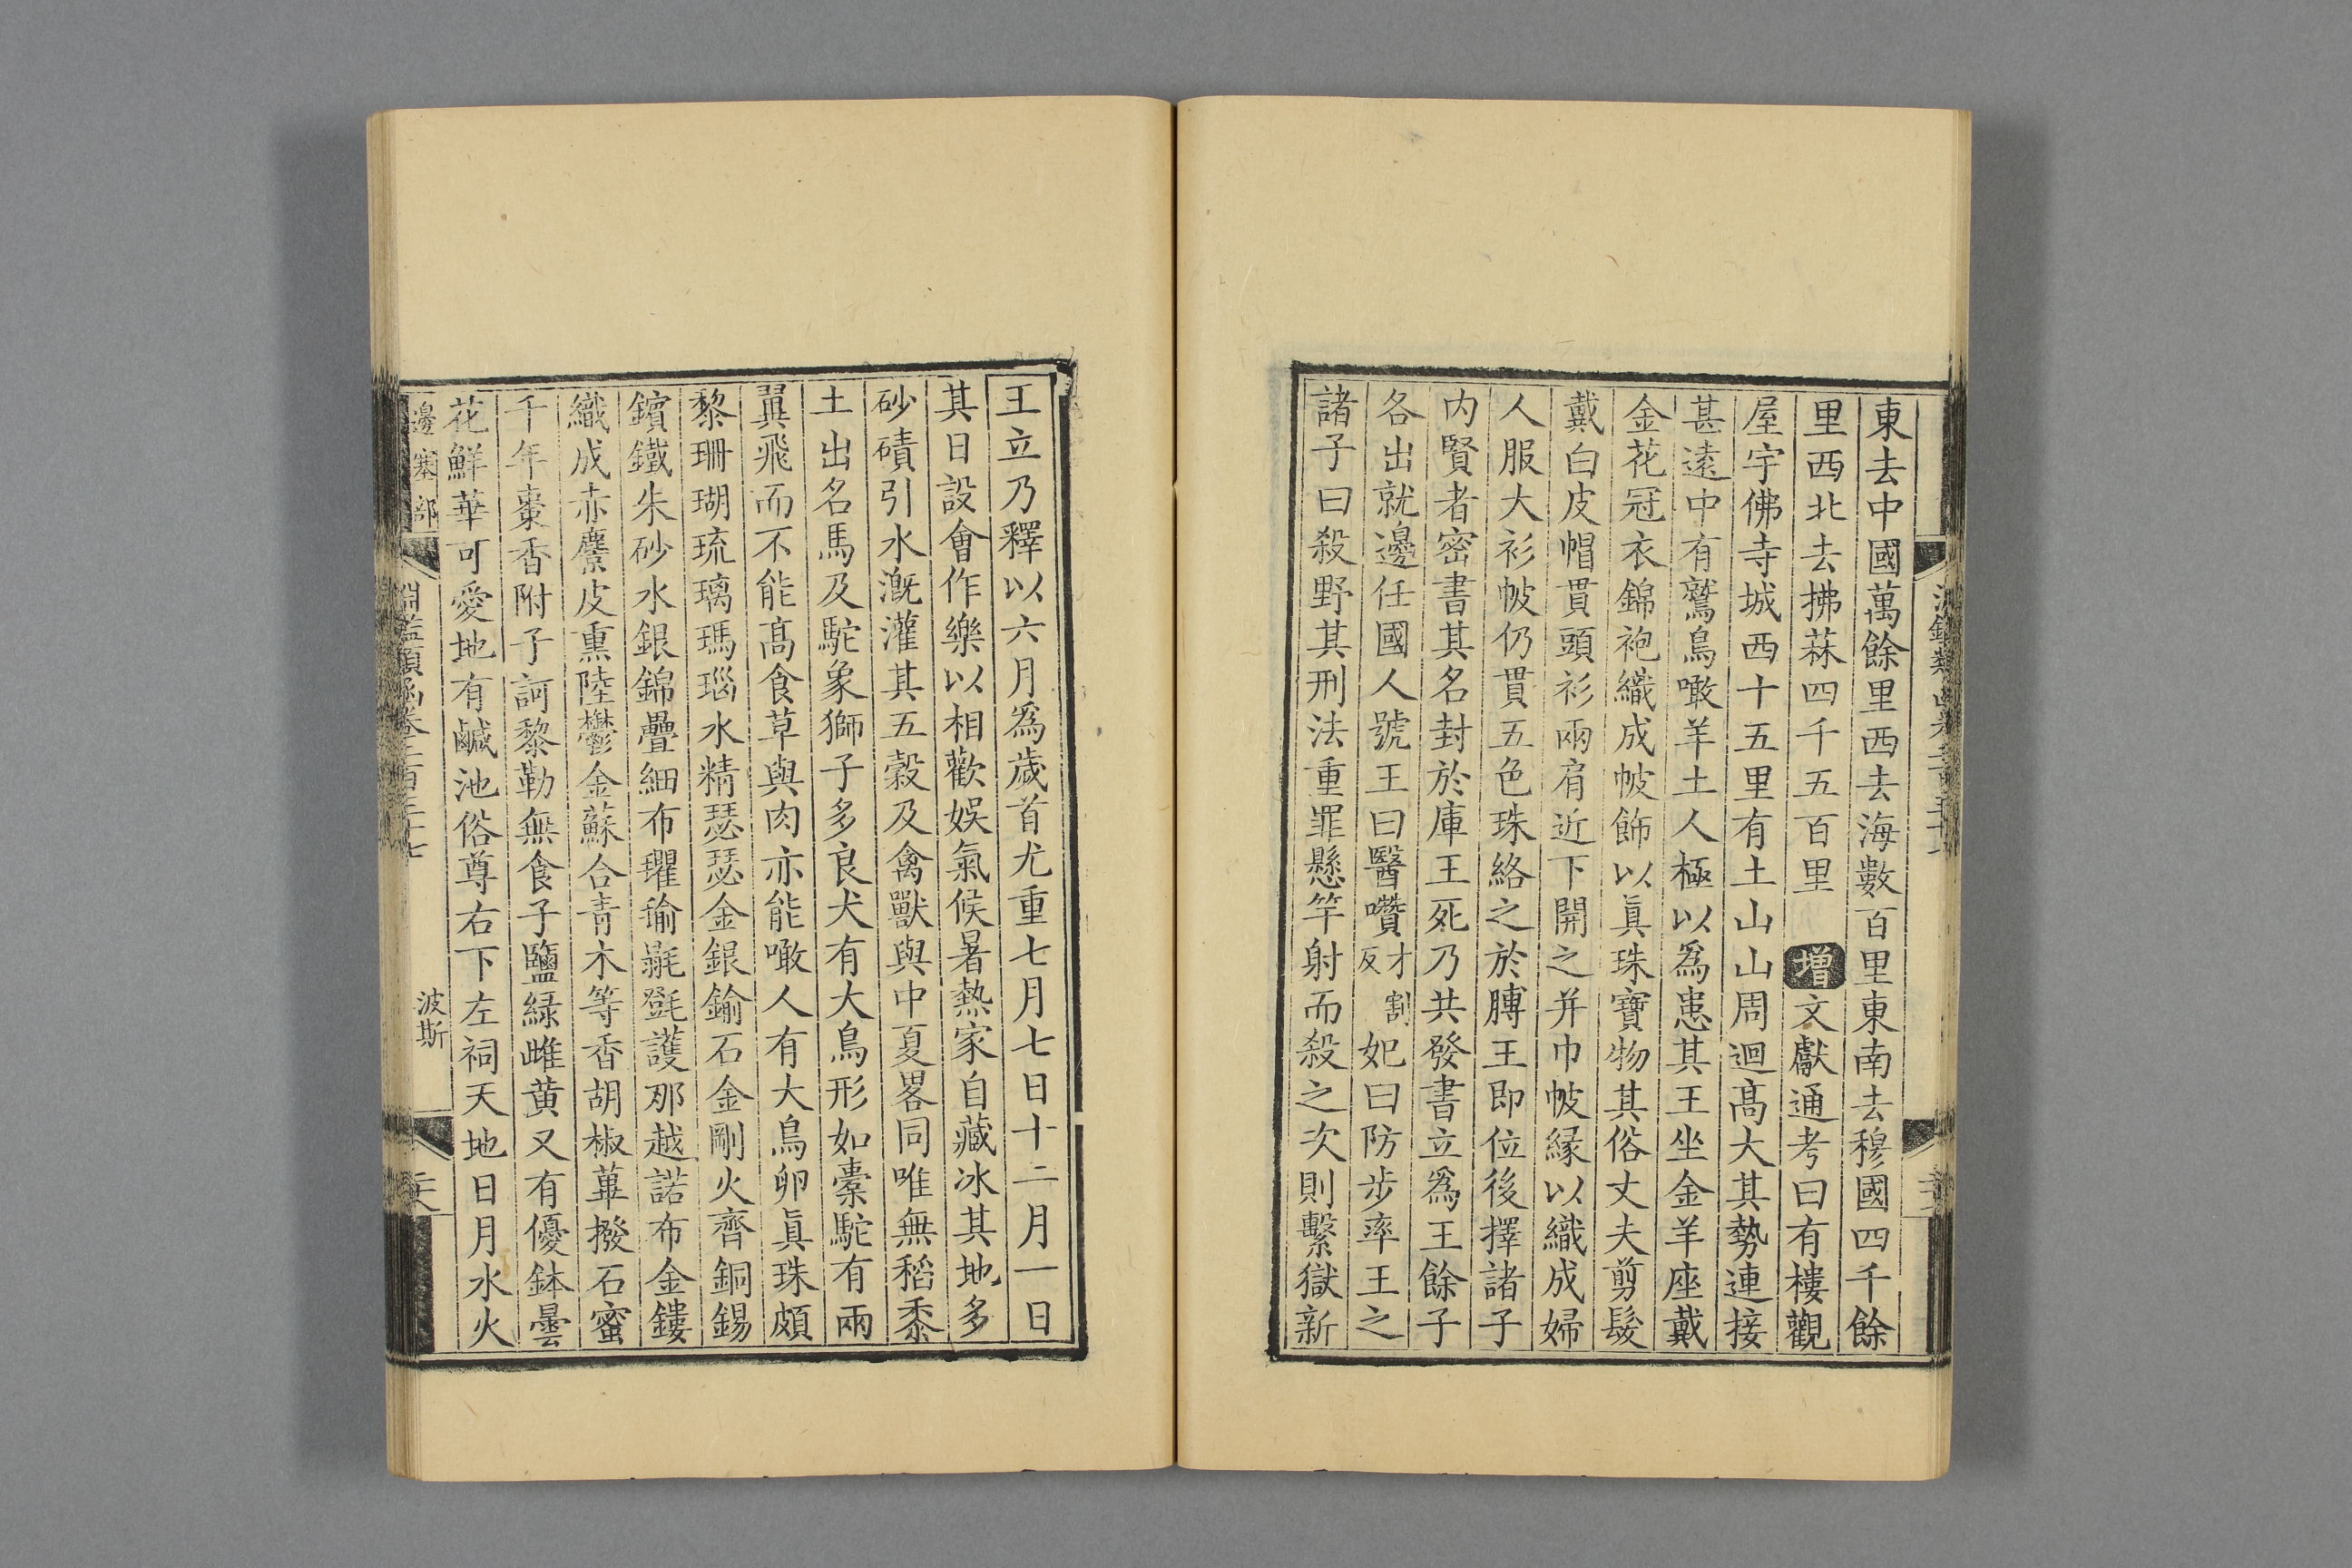 東去中國萬餘里西去海數百里東南去穆國四千餘
里西北去拂菻四千五百里 增 文獻通考曰有樓觀
屋宇佛寺城西十五里有土山山周迴高大其勢連接
甚遠中有鷲鳥噉羊土人極以爲患其王坐金羊座戴
金花冠衣錦袍織成帔飾以眞珠寶物其俗丈夫剪髮
戴白皮帽貫頭衫兩肩近下開之并巾帔緣以織成婦
人服大衫帔仍貫五色珠絡之於膊王即位後擇諸子
内賢者密書其名封於庫王死乃共發書立爲王餘子
各出就邊任國人號王曰醫囋才割反妃曰防步率王之
諸子曰殺野其刑法重罪懸竿射而殺之次則繫獄新
王立乃釋以六月爲歲首尤重七月七日十二月一日
其日設會作樂以相歡娛氣候暑熱家自藏冰其地多
砂磧引水漑灌其五穀及禽獸與中夏畧同唯無稻黍
土出名馬及駝象獅子多良犬有大鳥形如橐駝有兩
翼飛而不能高食草與肉亦能噉人有大鳥卵眞珠頗
黎珊瑚琉璃瑪瑙水精瑟瑟金銀鍮石金剛火齊銅錫
鑌鐵朱砂水銀錦疊細布氍毹㲪㲪護那越諾布金鏤
織成赤麖皮熏陸鬱金蘇合青木等香胡椒蓽撥石蜜
千年棗香附子訶黎勒無食子鹽綠雌黄又有優鉢曇
花鮮華可愛地有鹹池俗尊右下左祠天地日月水火
邊塞部
淵鑑類函卷二百三十七
波斯